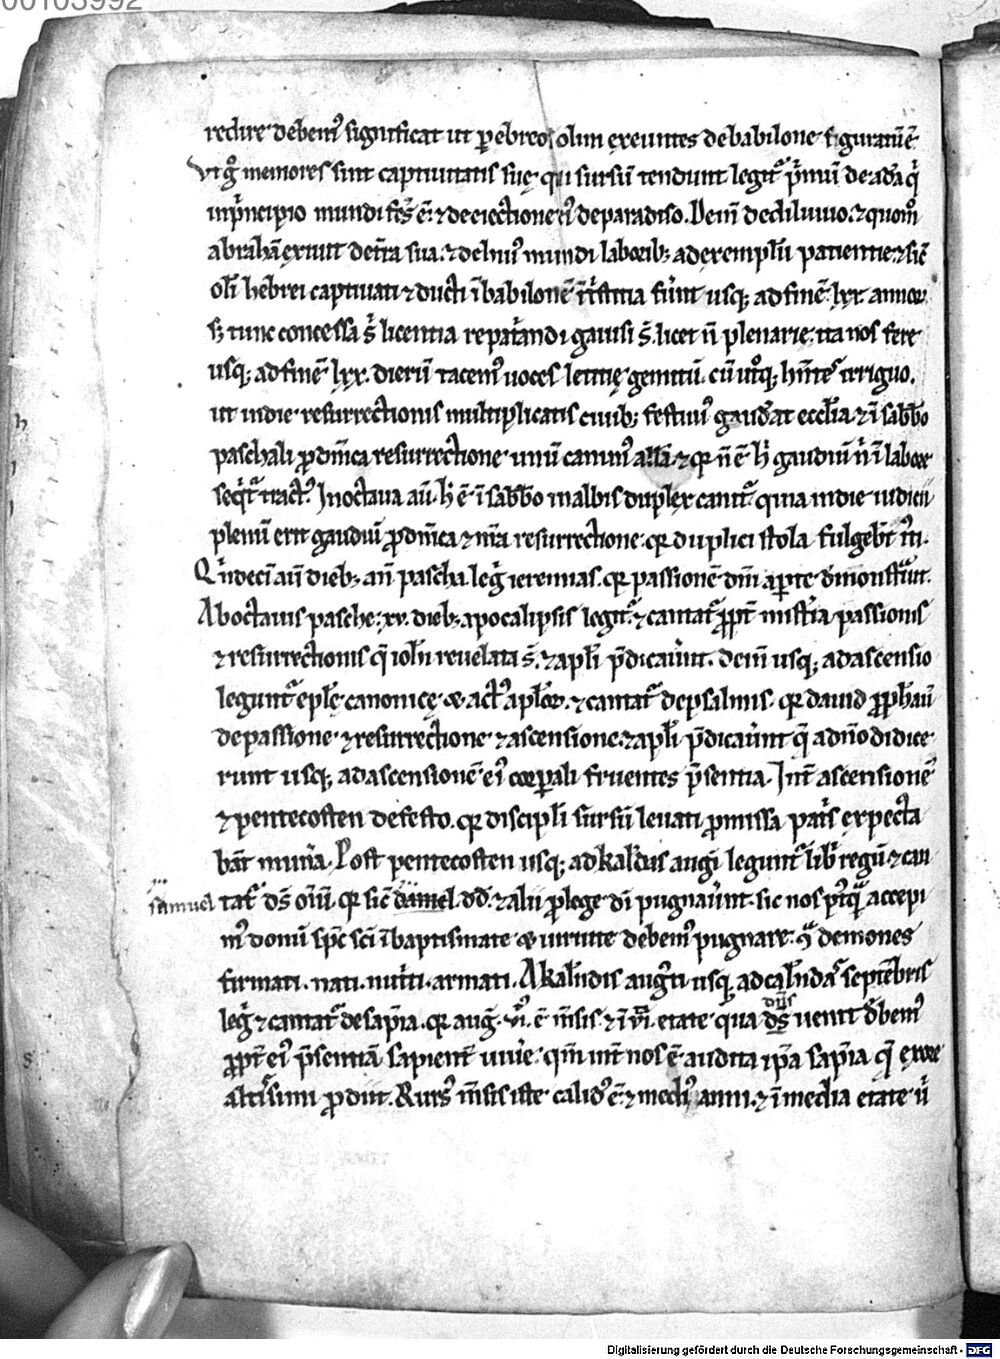 00103992
redire debem᷒ significat ut p̲ ebreos olim exeuntes de babilone figuratū ē
Vt gͦ memores sint captiuitatis suę qui sursū tendunt legit᷑ p̓mū de adā q̓
inp̓ncipio mundi fc̄s ē. ⁊ de eiectione ei᷒ de paradiso. Dein̄ de diluuio. ⁊ quom̊
abrahā exiuit de t̄ra sua. ⁊ de hui᷒ mundi laborib; ad exemplū patientie. ⁊ sic̄
oli̅ hebrei captiuati ⁊ ducti ī babilonē ī t̓stitia fuer̄t usq; ad finē lxx. annoꝝ
s; tunc concessa s̄ licentia repat̓andi gauisi s̄. licet n̄ plenarie. ita nos fere
usq; ad finē lxx. dierū tacem᷒ uoces letitię gemitū. cū ut̊q; hn̄tes irriguo.
ut in die resurrectionis multiplicatis ciuib; festiui᷒ gaudeat eccl̄ia. ⁊ ī sabb̄o
paschali p̱ dn̄ica resurrectione unū canim᷒ all̄a. ⁊ qꝛ n̄ ē h̓ gaudiū n̓ ī labore
seq̓t᷑ tract᷒. In octaua aū. h̓ ē ī sabb̄o in albis duplex canit᷑ quia in die iudicii
plenū erit gaudiū p̱ dn̄ica ⁊ nr̄a resurrectione. qꝛ duplici stola fulgebt̄
Qͥndeci̅ aū dieb; an̄ pascha leg̓ ieremias. qꝛ passionē dn̄i ap̲te demonstrat.
Ab octauis pasche. xv. dieb; apocalipsis legit᷑. ⁊ cantat᷑ ꝓpt̄ mist̓ia passionis
⁊ resurrectionis q̄ ioh̄i reuelata s̄. ⁊ apl̄i p̄dicauer̄t. dein̄ usq; ad ascensio
legunt᷑ epl̄e canonicę ⁊ act᷒ apl̄oꝝ. ⁊ cantat᷑ de psalmis. qꝛ dauid ꝓphauit
de passione ⁊ resurrectione ⁊ ascensione. ⁊ apl̄i p̄dicauer̄t q̄ a dn̄o didice
runt usq; ad ascensionē ei᷒ corp̲ali fruentes p̄sentia. Int̄ ascensionē
⁊ pentecosten de festo. qꝛ discipl̄i sursū leuati ꝓmissa pat̓s expecta
bāt mun̓a. Post pentecosten usq; ad kalendas aug̓. legunt᷑ lib̓ regū ⁊ can
samuel
tat᷑ ds̄ oīū. qꝛ sic̄ daniel. dd̄. ⁊ alii p̱ lege dī pugnauer̄t. sic nos p̱tq̄ accepi
m᷒ donū spc̄ sc̄i ī baptismate ⁊ uirtute debem᷒ pugnare ꝯt̓ demones
firmati. nati. nut̓ti. armati. A kalendis aug̓ti usq; ad calenda᷒ septēbris
dn̄s
leg̓ ⁊ cantat᷑ de sap̄ia. qꝛ aug̓. vi᷒. ē m̄sis. ⁊ ī vi. etate qua ds̄ uenit debem᷒
ꝓpt̄ ei᷒ p̄sentiā sapient̄ uiue̓. qm̄ int̄ nos ē audita ip̄a sap̄ia q̄ ex ore
altissimi ꝓdiit. Rurs᷒ m̄sis iste calid᷒ ē. ⁊ medi᷒ anni. ⁊ ī media etate
h
s
Digitalisierung gefördert durch die Deutsche Forschungsgemeinschaft - DFG